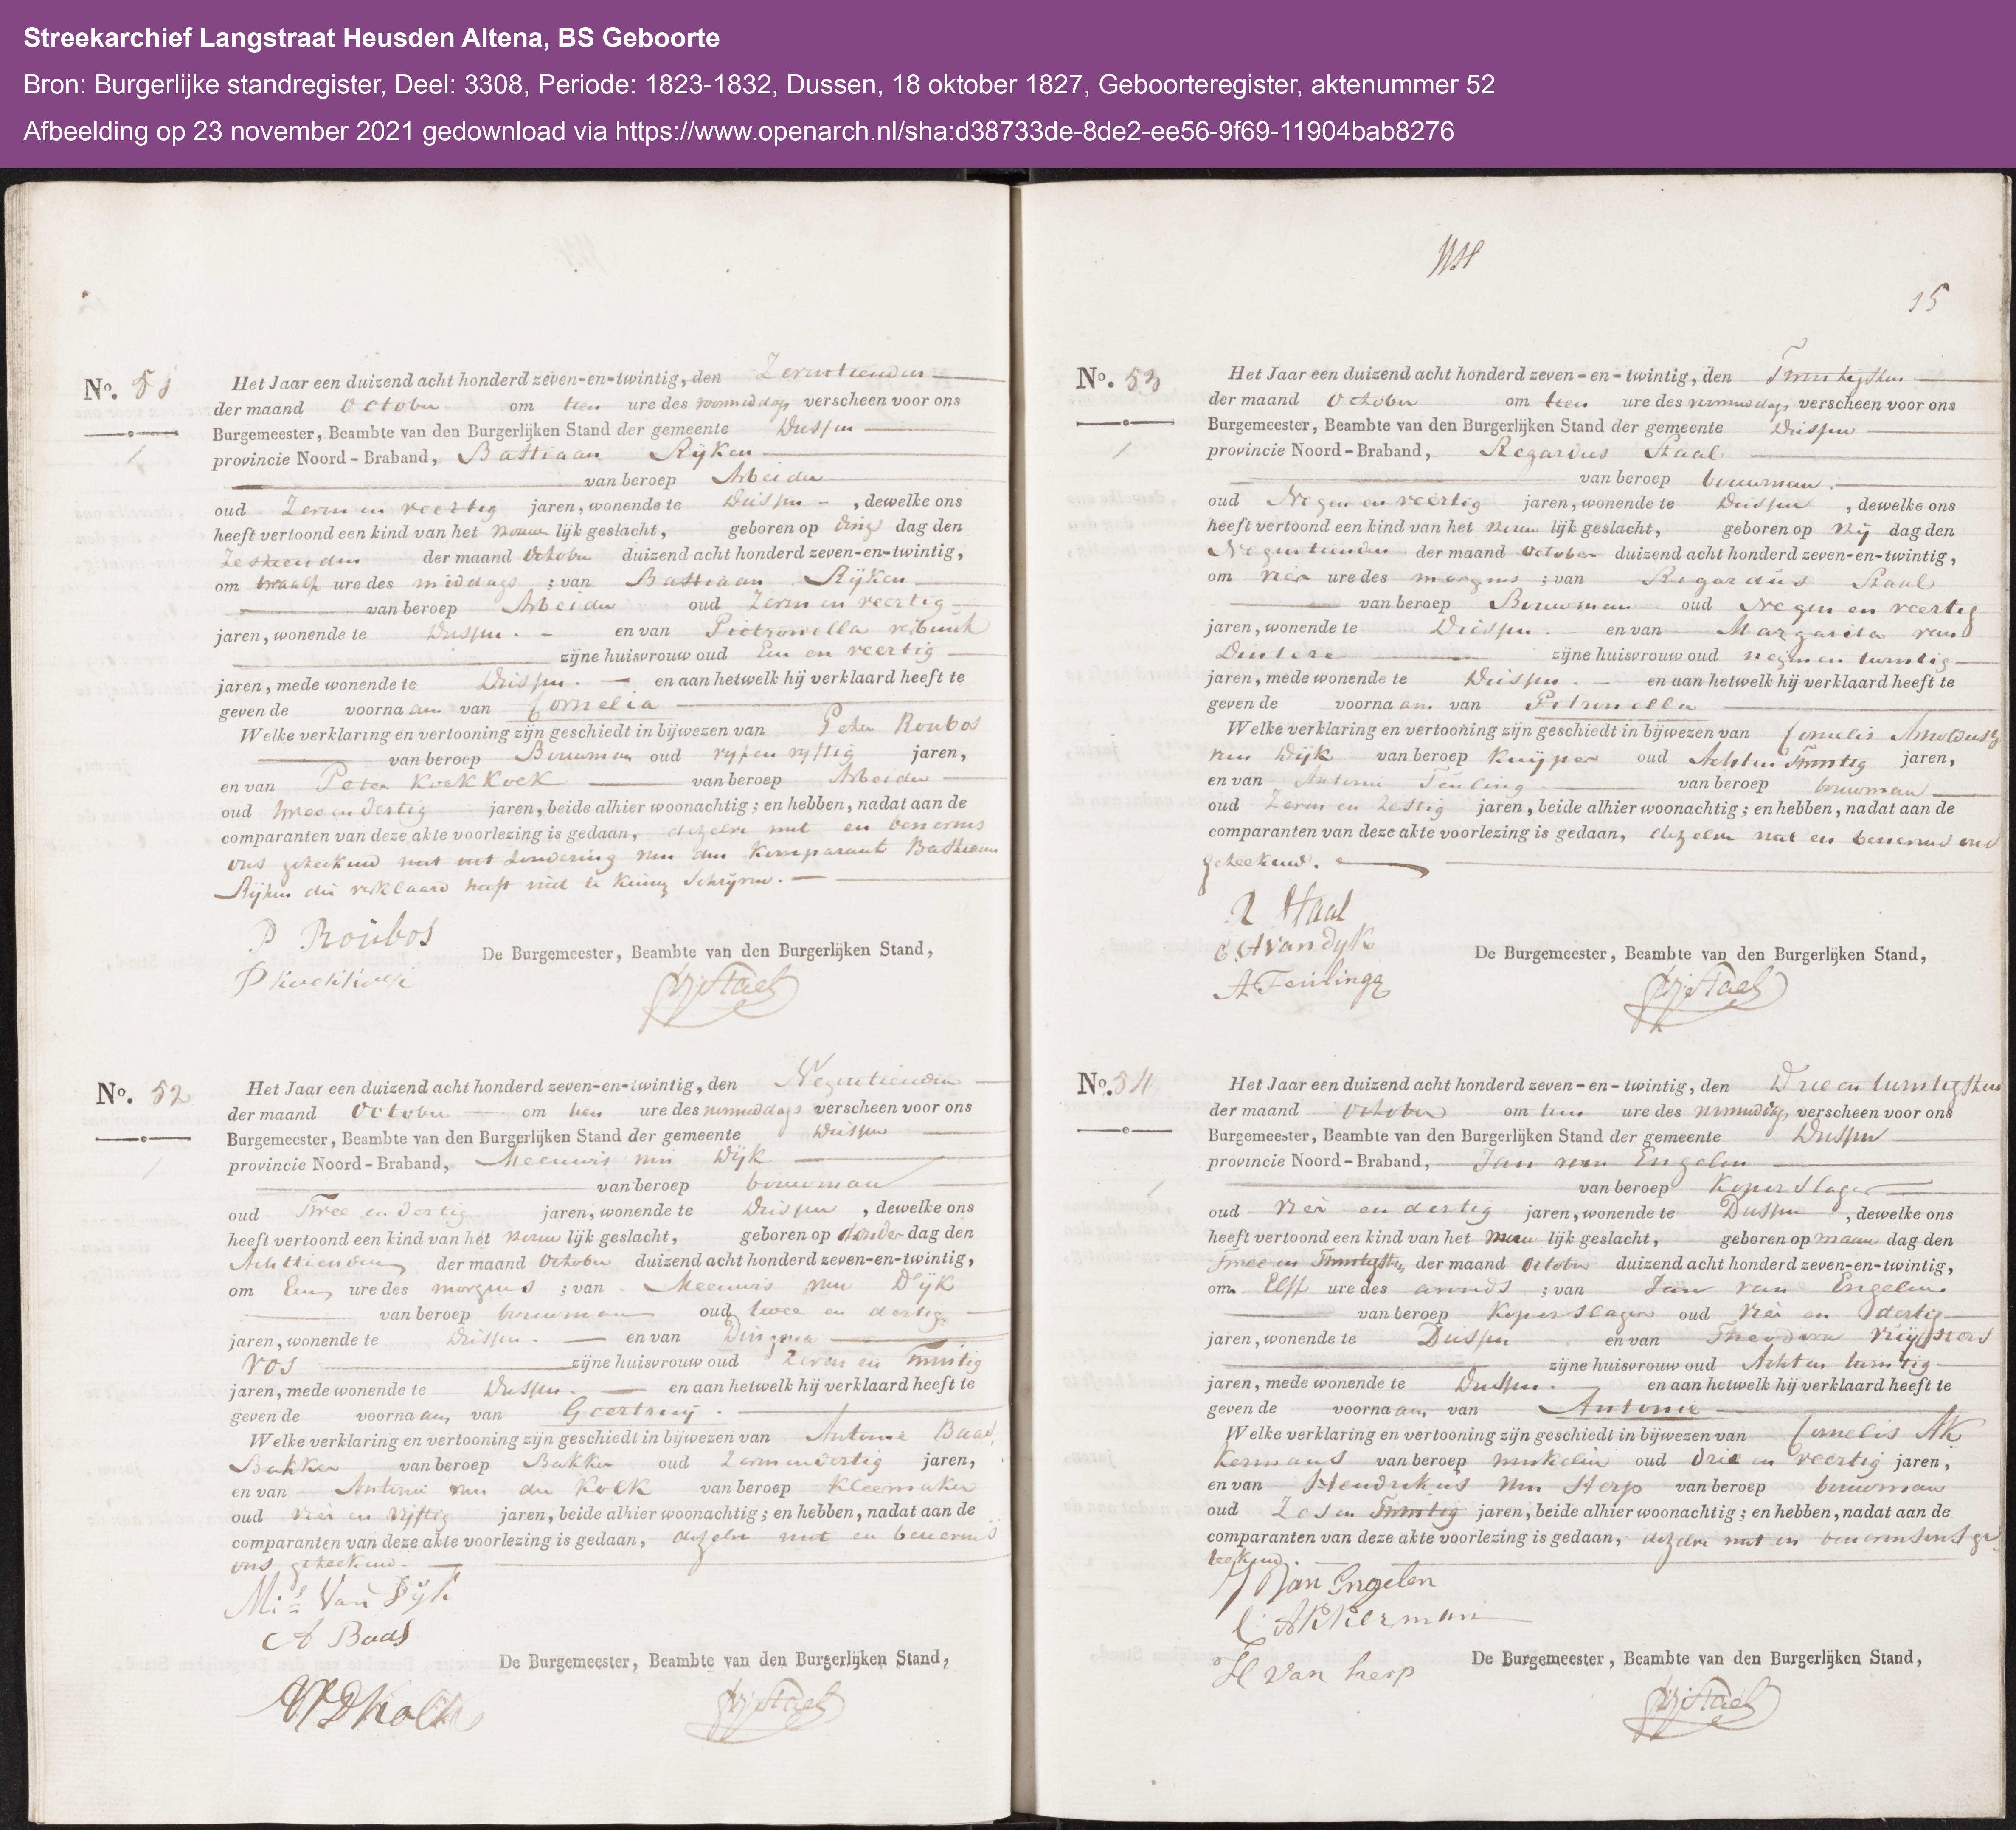 Streekarchief Langstraat Heusden Altena, BS Geboorte
Bron: Burgerlijke standregister, Deel: 3308, Periode: 1823-1832, Dussen, 18 oktober 1827, Geboorteregister, aktenummer 52
Afbeelding op 23 november 2021 gedownload via https://www.openarch.nl/sha:d38733de-8de2-ee56-9f69-11904bab8276
No. 51
Het Jaar een duizend acht honderd zeven-en-twintig, den Zeventienden
der maand October om tien ure des voormiddags verscheen voor ons
Burgemeester, Beambte van den Burgerlijken Stand der gemeente Dussen
provincie Noord-Braband, Bastiaan Rijken
van beroep Arbeider
oud Zeven en veertig jaren, wonende te Dussen, dewelke ons
heeft vertoond een kind van het vrouwlijk geslacht, geboren op dingsdag den
Zestienden der maand October duizend acht honderd zeven-en-twintig,
om twaalf ure des middags; van Bastiaan Rijken
van beroep Arbeider oud Zeven en veertig
jaren, wonende te Dussen. en van Pietronella
zijne huisvrouw oud Een en veertig
jaren, mede wonende te Dussen. en aan hetwelk hij verklaard heeft te
geven de voornaam van Cornelia
Welke verklaring en vertooning zijn geschiedt in bijwezen van Peter Roubos
van beroep Bouwman oud vyf en vyftig jaren,
en van Peter Koekkoek van beroep Arbeider
oud twee en dertig jaren, beide alhier woonachtig; en hebben, nadat aan de
comparanten van deze akte voorlezing is gedaan, dezelve met en benevens
ons geteekend met uitzondering van den Komparant Bastiaan
Rijken die verklaard heeft niet te kunnen Schrijven.
P Roubos
De Burgemeester, Beambte van den Burgerlijken Stand,
P Koekkoek
No. 52
Het Jaar een duizend acht honderd zeven-en-twintig, den Negentienden
der maand October om tien ure des voormiddags verscheen voor ons
Burgemeester, Beambte van den Burgerlijken Stand der gemeente Dussen
provincie Noord-Braband, Meeuwis van Dijk
van beroep bouwman
oud Twee en dertig jaren, wonende te Dussen, dewelke ons
heeft vertoond een kind van het vrouwlijk geslacht, geboren op donderdag den
Achttienden der maand October duizend acht honderd zeven-en-twintig,
om Een ure des morgens; van Meeuwis van Dijk
van beroep bouwman oud twee en dertig
jaren, wonende te Dussen. en van Dingena
Vos zijne huisvrouw oud Zeven en Twintig
jaren, mede wonende te Dussen. en aan hetwelk hij verklaard heeft te
geven de voornaam van Geertruij.
Welke verklaring en vertooning zijn geschiedt in bijwezen van Antonie Baas
Bakker van beroep Bakker oud Zeven en dertig jaren,
en van Antonie van der Kolk van beroep Kleermaker
oud vier en vijftig jaren, beide alhier woonachtig; en hebben, nadat aan de
comparanten van deze akte voorlezing is gedaan, dezelve met en benevens
ons geteekend.
Mis Van Dijk
A Baas
De Burgemeester, Beambte van den Burgerlijken Stand,
AVDKolk
15
No. 53
Het Jaar een duizend acht honderd zeven-en-twintig, den Twintigsten
der maand October om tien ure des voormiddags verscheen voor ons
Burgemeester, Beambte van den Burgerlijken Stand der gemeente Dussen
provincie Noord-Braband, Regardus Staal
van beroep bouwman.
oud Negen en veertig jaren, wonende te Dussen, dewelke ons
heeft vertoond een kind van het vrouwlijk geslacht, geboren op vrijdag den
Negentienden der maand October duizend acht honderd zeven-en-twintig,
om vier ure des morgens; van Regardus Staal
van beroep Bouwman oud Negen en veertig
jaren, wonende te Dussen. en van Margarita van
Dintere zijne huisvrouw oud negen en twintig
jaren, mede wonende te Dussen. en aan hetwelk hij verklaard heeft te
geven de voornaam van Petronella
Welke verklaring en vertooning zijn geschiedt in bijwezen van Cornelis Arnoldusz
van Dijk van beroep Kuijper oud Acht en Twintig jaren,
en van Antonie Teuling van beroep bouwman
oud Zeven en Zestig jaren, beide alhier woonachtig; en hebben, nadat aan de
comparanten van deze akte voorlezing is gedaan, dezelve met en benevens ons
geteekend.
R Staal
C A van dyk
De Burgemeester, Beambte van den Burgerlijken Stand,
A Teulings
No. 54
Het Jaar een duizend acht honderd zeven-en-twintig, den Drie en twintigsten
der maand October om tien ure des voormiddags verscheen voor ons
Burgemeester, Beambte van den Burgerlijken Stand der gemeente Dussen
provincie Noord-Braband, Jan van Engelen
van beroep Koperslager
oud vier en dertig jaren, wonende te Dussen, dewelke ons
heeft vertoond een kind van het lijk geslacht, geboren op maandag den
Twee en Twintigsten der maand October duizend acht honderd zeven-en-twintig,
om Elff ure des avonds; van Jan van Engelen
van beroep Koperslager oud vier en dertig
jaren, wonende te Dussen en van Theodora
zijne huisvrouw oud Acht en twintig
jaren, mede wonende te Dussen. en aan hetwelk hij verklaard heeft te
geven de voornaam van Antonie
Welke verklaring en vertooning zijn geschiedt in bijwezen van Cornelis Ak
kermans van beroep winkelier oud Drie en veertig jaren,
en van Hendrikus van Herp van beroep bouwman
oud Zes en Twintig jaren, beide alhier woonachtig; en hebben, nadat aan de
comparanten van deze akte voorlezing is gedaan, dezelve met en benevens ons ge
teekend
J van Engelen
C Akkerman
De Burgemeester, Beambte van den Burgerlijken Stand,
H van herp